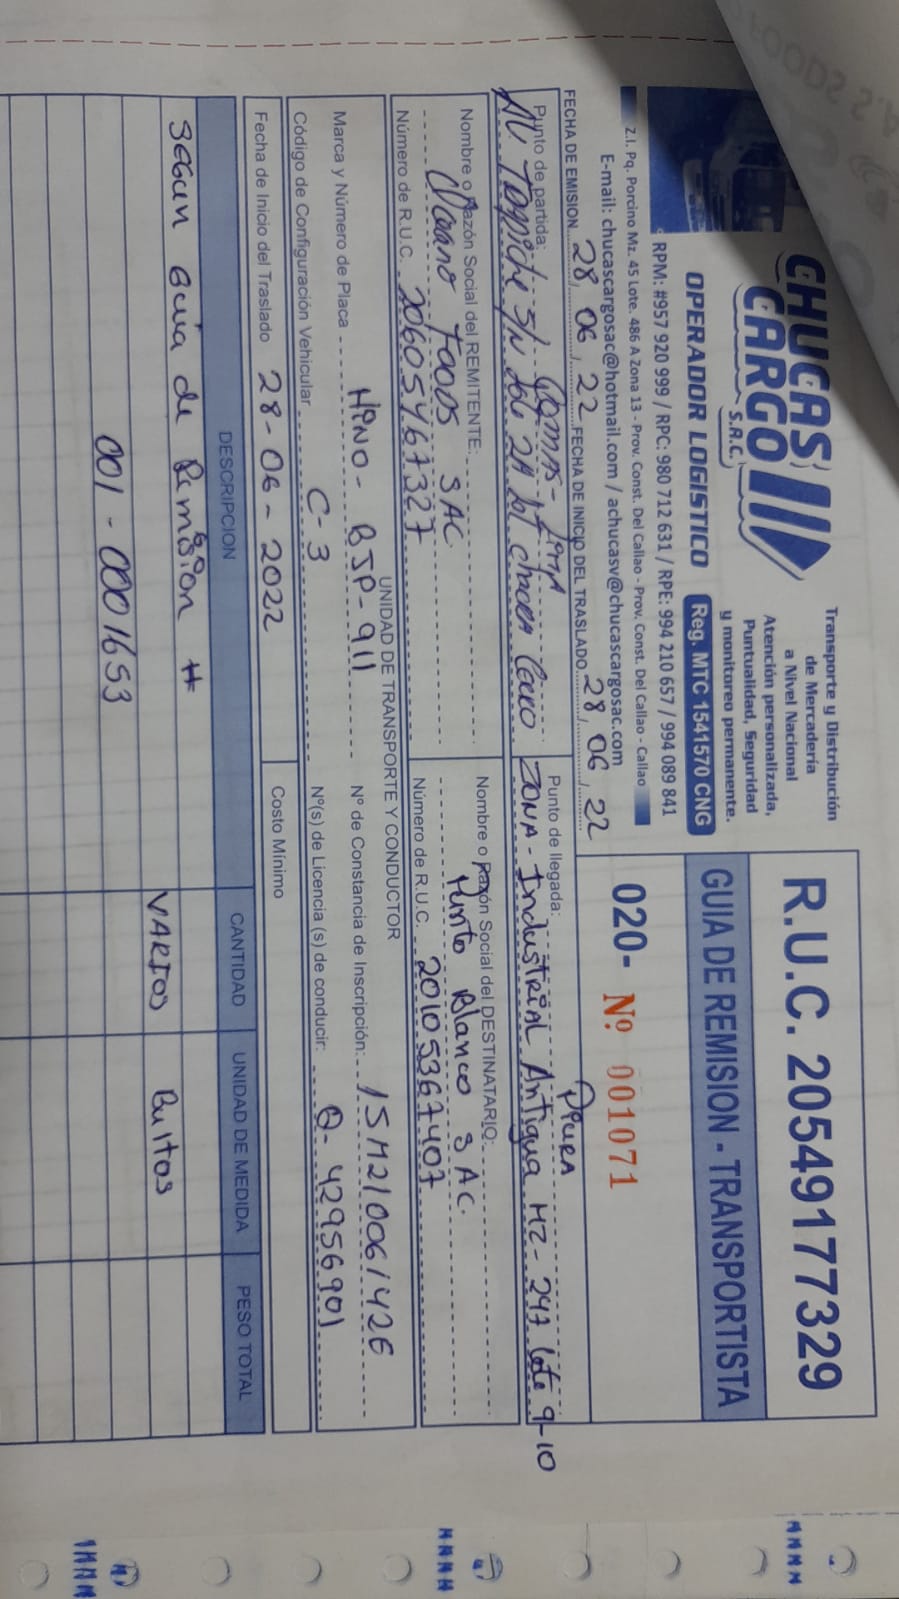 CHUCAS
CARGO
S.A.C.
OPERADOR LOGISTICO
Transporte y Distribución
de Mercadería
a Nivel Nacional
Atención personalizada,
Puntualidad, Seguridad
y monitoreo permanente.
Reg. MTC 1541570 CNG
RPM: #957 920 999 / RPC: 980 712 631 / RPE: 994 210 657 / 994 089 841
Z.I. Pq. Porcino Mz. 45 Lote. 486 A Zona 13 - Prov. Const. Del Callao - Prov. Const. Del Callao - Callao
E-mail: chucascargosac@hotmail.com / achucasv@chucascargosac.com
R.U.C. 20549177329
GUIA DE REMISION - TRANSPORTISTA
020- Nº 001071
FECHA DE EMISION 28 / 06 / 22 FECHA DE INICIO DEL TRASLADO 28 / 06 / 22
Punto de partida: Comas - Lima
AV Tapiche S/N Lote 2A Chacra Cerro
Punto de llegada: Piura
Zona - Industrial Antigua Mz - 247 Lote 9-10
Nombre o Razón Social del REMITENTE:
Foods SAC
Número de R.U.C. 20605467327
Nombre o Razón Social del DESTINATARIO:
Punto Blanco SAC
Número de R.U.C. 20105367407
UNIDAD DE TRANSPORTE Y CONDUCTOR
Marca y Número de Placa HINO - BJP-911
Nº de Constancia de Inscripción: 15M21006142E
Código de Configuración Vehicular C-3
Nº(s) de Licencia (s) de conducir: Q-42956901
Fecha de Inicio del Traslado 28-06-2022
Costo Mínimo
DESCRIPCION CANTIDAD UNIDAD DE MEDIDA PESO TOTAL
Segun Guia de Remision # VARIOS Bultos
001-0001653